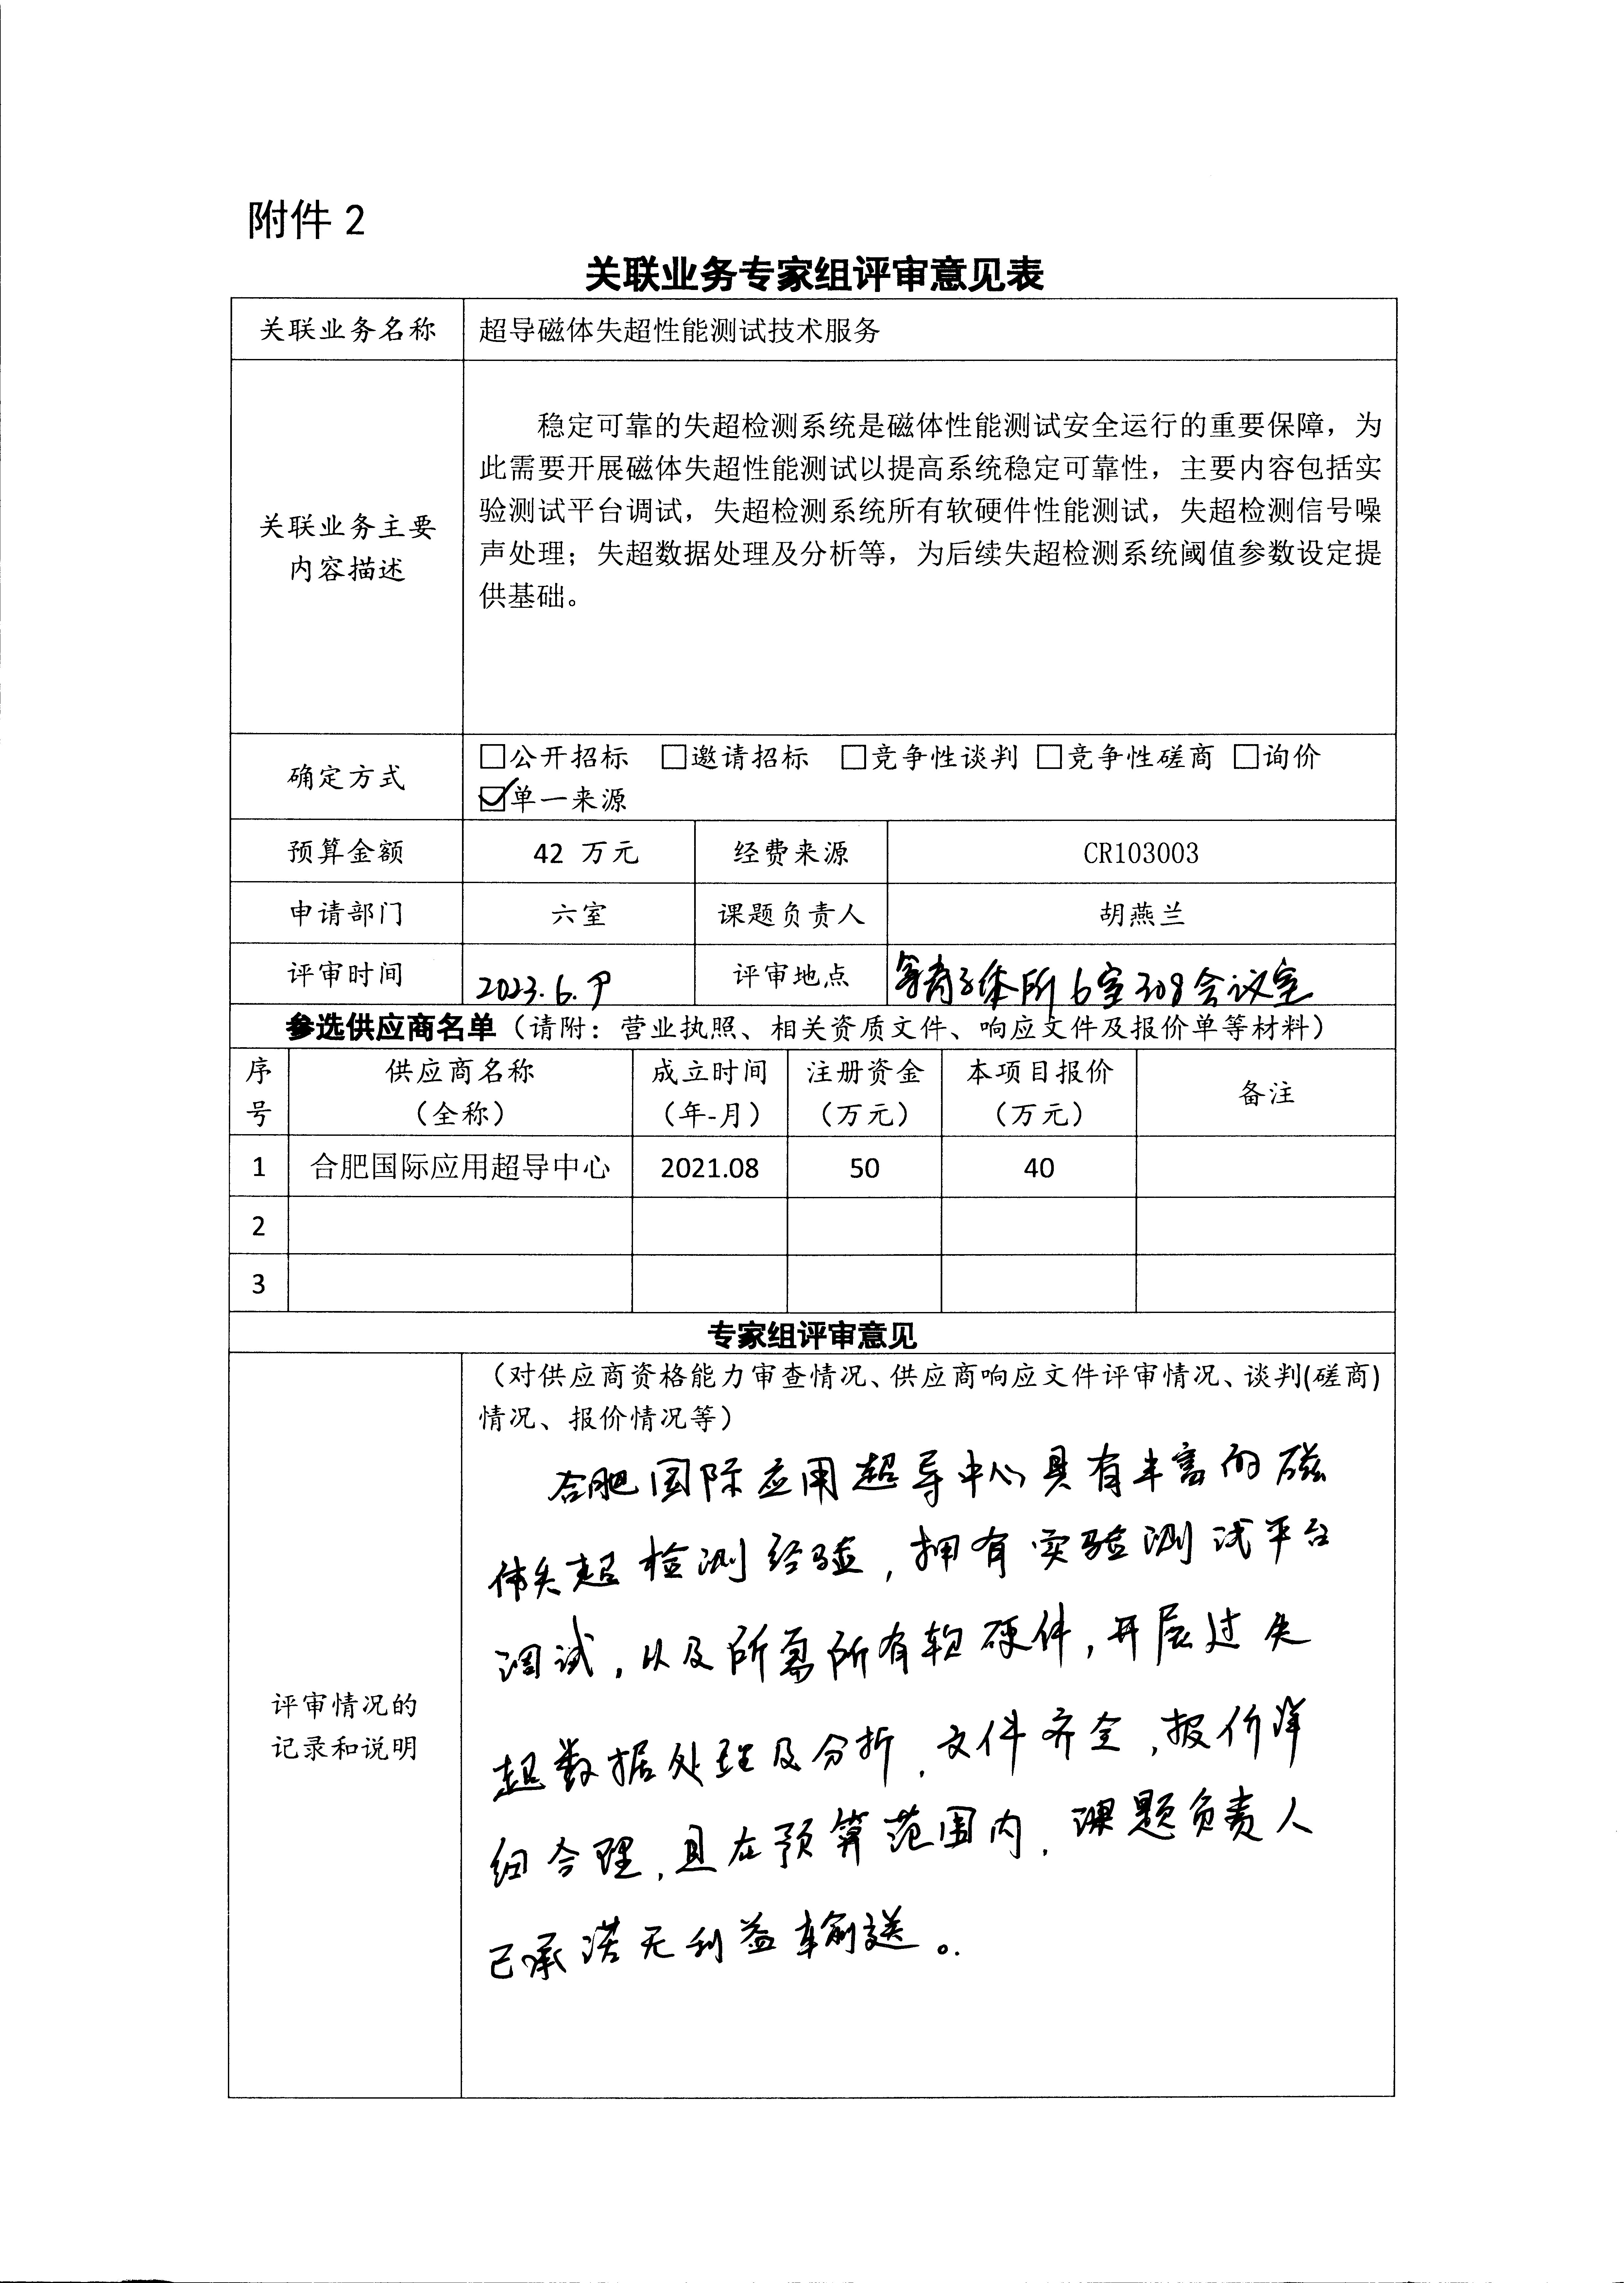 附件 2
关联业务专家组评审意见表
关联业务名称
超导磁体失超性能测试技术服务
关联业务主要
内容描述
稳定可靠的失超检测系统是磁体性能测试安全运行的重要保障，为
此需要开展磁体失超性能测试以提高系统稳定可靠性，主要内容包括实
验测试平台调试，失超检测系统所有软硬件性能测试，失超检测信号噪
声处理；失超数据处理及分析等，为后续失超检测系统阈值参数设定提
供基础。
确定方式
□公开招标 □邀请招标 □竞争性谈判 □竞争性磋商 □询价
☑单一来源
预算金额 42 万元 经费来源 CR103003
申请部门 六室 课题负责人 胡燕兰
评审时间 2023.6. 评审地点 等离子体所6室308会议室
参选供应商名单（请附：营业执照、相关资质文件、响应文件及报价单等材料）
序号 供应商名称（全称） 成立时间（年-月） 注册资金（万元） 本项目报价（万元） 备注
1 合肥国际应用超导中心 2021.08 50 40
2
3
专家组评审意见
评审情况的
记录和说明
（对供应商资格能力审查情况、供应商响应文件评审情况、谈判(磋商)
情况、报价情况等）
合肥国际应用超导中心具有丰富的磁
体失超检测经验，拥有实验测试平台
调试，以及所需所有软硬件，开展过失
超数据处理及分析，文件齐全，报价详
细合理，且在预算范围内，课题负责人
已承诺无利益输送。